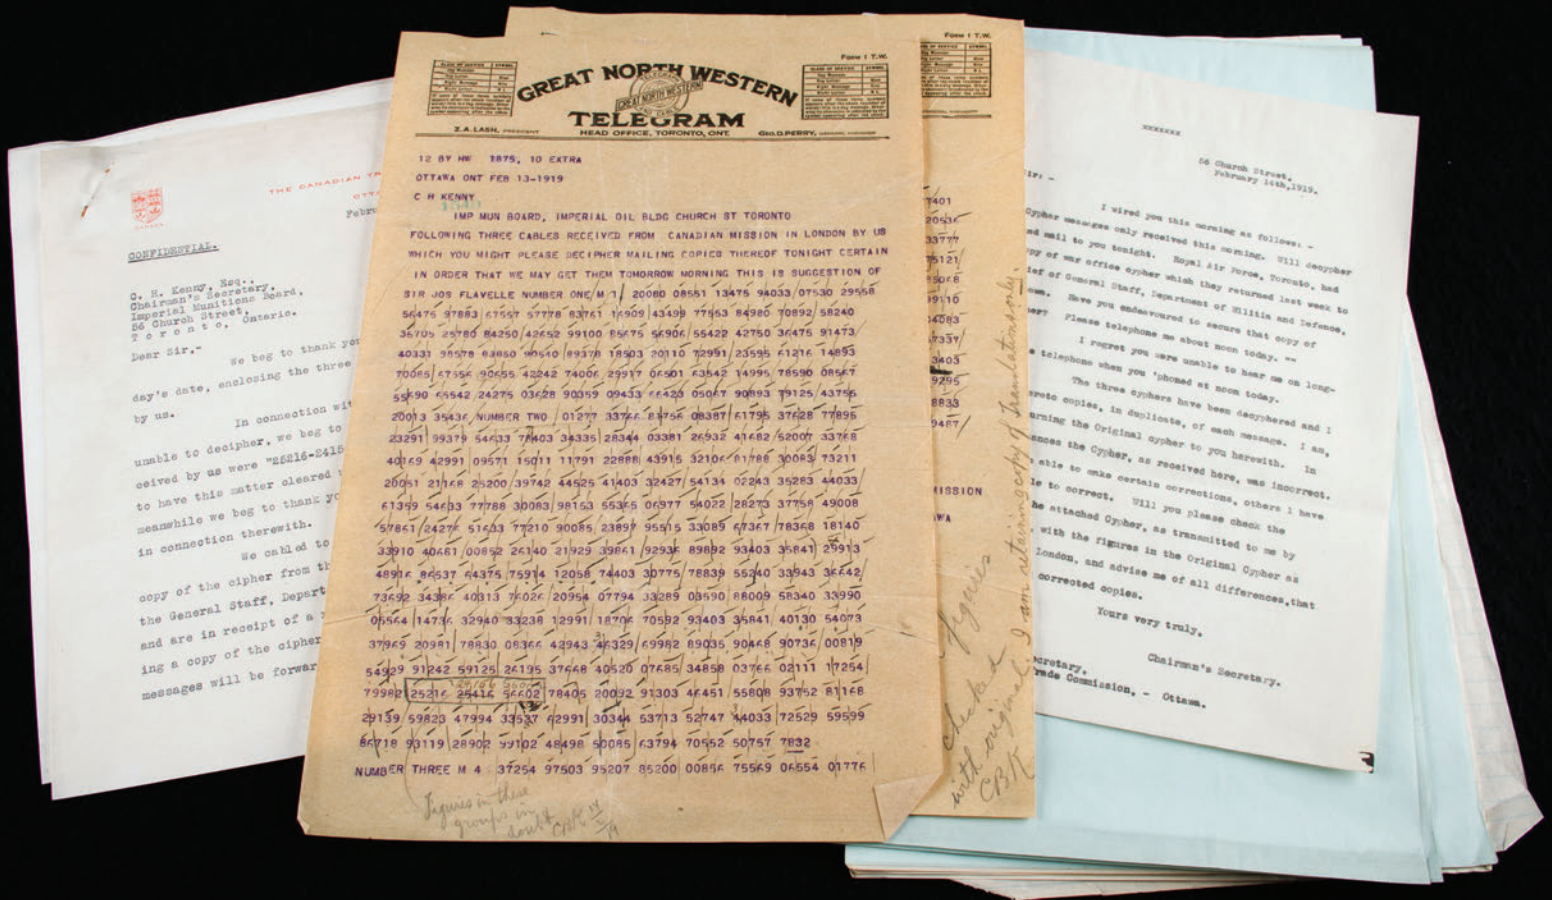 CONFIDENTIAL.
C. H. Kenny, Esq.,
Chairman's Secretary,
Imperial Munitions Board,
56 Church Street,
Toronto, Ontario.
Dear Sir,-
We beg to thank you
day's date, enclosing the three
by us.
In connection wit
unable to decipher, we beg to
ceived by us were "25216-2415
to have this matter cleared
meanwhile we beg to thank yo
in connection therewith.
We cabled to
copy of the cipher from th
the General Staff, Depart
and are in receipt of a
ing a copy of the cipher
messages will be forwar
Form 1 T.W.
GREAT NORTH WESTERN
TELEGRAM
Z.A. LASH, PRESIDENT
HEAD OFFICE, TORONTO, ONT.
GEO. D. PERRY, GENERAL MANAGER
12 BY HW 1875, 10 EXTRA
OTTAWA ONT FEB 13-1919
C H KENNY
IMP MUN BOARD, IMPERIAL OIL BLDG CHURCH ST TORONTO
FOLLOWING THREE CABLES RECEIVED FROM CANADIAN MISSION IN LONDON BY US
WHICH YOU MIGHT PLEASE DECIPHER MAILING COPIES THEREOF TONIGHT CERTAIN
IN ORDER THAT WE MAY GET THEM TOMORROW MORNING THIS IS SUGGESTION OF
SIR JOS FLAVELLE NUMBER ONE M 1 20080 08551 13475 94033 07530 29558
56475 97883 67557 57778 83761 16909 43499 77553 84980 70892 58240
36705 25780 84250 42652 99100 85675 56906 55422 42750 36475 91473
40331 98578 83850 90540 89378 18503 20110 72991 23595 61216 14893
70085 67556 90655 42242 74006 29917 06501 63542 14995 78590 08567
55690 65542 24275 03628 90359 09433 66423 05067 90893 79125 43756
20013 35436 NUMBER TWO 01277 33766 81756 08387 61795 37628 77896
23291 99379 54633 78403 34335 28344 03381 26932 41682 52007 33768
40169 42991 09571 15011 11791 22888 43915 32106 81788 30083 73211
20051 21168 25200 39742 44525 41403 32427 54134 02243 35283 44033
61359 54633 77788 30083 98153 55365 06977 54022 28273 37758 49008
57861 24276 51633 77210 90085 23897 95515 33089 67367 78368 18140
33910 40661 00852 26140 21929 39861 92936 89892 93403 35841 29913
48916 86537 64375 75914 12058 74403 30775 78839 55240 33943 36642
73692 34386 40313 76026 20954 07794 33289 03590 88009 58340 33990
05564 14736 32940 33238 12991 18706 70592 93403 35841 40130 54073
37969 20981 78830 08366 42943 46329 69982 89035 90468 90736 00819
54929 91242 59125 26195 37668 40520 07685 34858 03766 02111 17254
79982 25216 25416 56602 78405 20092 91303 46451 55808 93752 81168
29139 59823 47994 33537 62991 30344 53713 52747 44033 72529 59599
86718 93119 28902 99102 48498 50085 63794 70552 50757 7832
NUMBER THREE M 4 37254 97503 95207 85200 00856 75569 06554 01776
Figures in these
groups in
doubt CBK
Form 1 T.W.
7401
20536
33777
75121
99110
3403
9295
8833
MISSION
figures
checked
with original
CBK
I am retaining copy of translations only.
xxxxxxx
56 Church Street,
February 14th, 1919.
ir: -
I wired you this morning as follows: -
Cypher messages only received this morning. Will decypher
nd mail to you tonight. Royal Air Force, Toronto, had
opy of war office cypher which they returned last week to
ief of General Staff, Department of Militia and Defence,
Have you endeavoured to secure that copy of
Please telephone me about noon today. --
I regret you were unable to hear me on long-
e telephone when you 'phoned at noon today.
The three cyphers have been decyphered and I
ereto copies, in duplicate, of each message. I am,
urning the Original cypher to you herewith. In
ances the Cypher, as received here, was incorrect.
able to make certain corrections, others I have
le to correct. Will you please check the
he attached Cypher, as transmitted to me by
with the figures in the Original Cypher as
London, and advise me of all differences, that
corrected copies.
Yours very truly,
Chairman's Secretary.
ecretary,
rade Commission, - Ottawa.